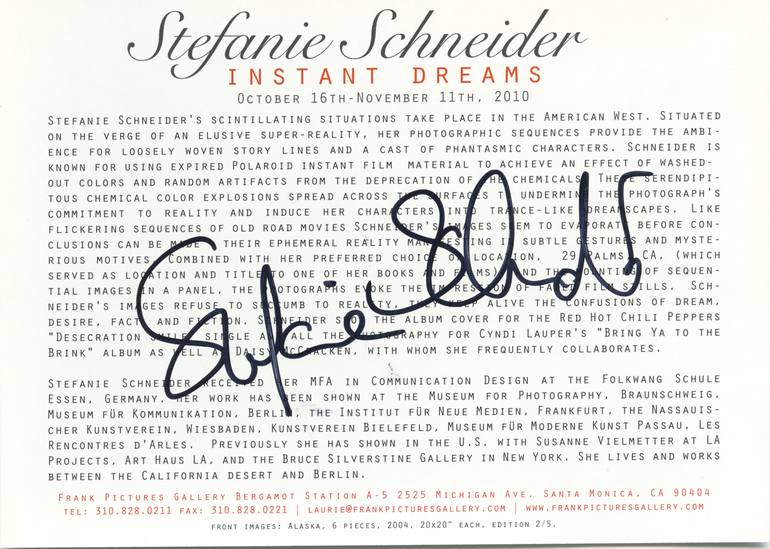 Stefanie Schneider
INSTANT DREAMS
OCTOBER 16TH-NOVEMBER 11TH, 2010
STEFANIE SCHNEIDER'S SCINTILLATING SITUATIONS TAKE PLACE IN THE AMERICAN WEST. SITUATED
ON THE VERGE OF AN ELUSIVE SUPER-REALITY, HER PHOTOGRAPHIC SEQUENCES PROVIDE THE AMBI-
ENCE FOR LOOSELY WOVEN STORY LINES AND A CAST OF PHANTASMIC CHARACTERS. SCHNEIDER IS
KNOWN FOR USING EXPIRED POLAROID INSTANT FILM MATERIAL TO ACHIEVE AN EFFECT OF WASHED-
OUT COLORS AND RANDOM ARTIFACTS FROM THE DEPRECATION OF THE CHEMICALS. THESE SERENDIPI-
TOUS CHEMICAL COLOR EXPLOSIONS SPREAD ACROSS THE SURFACES TO UNDERMINE THE PHOTOGRAPH'S
COMMITMENT TO REALITY AND INDUCE HER CHARACTERS INTO TRANCE-LIKE DREAMSCAPES. LIKE
FLICKERING SEQUENCES OF OLD ROAD MOVIES SCHNEIDER'S IMAGES SEEM TO EVAPORATE BEFORE CON-
CLUSIONS CAN BE MADE - THEIR EPHEMERAL REALITY MANIFESTING IN SUBTLE GESTURES AND MYSTE-
RIOUS MOTIVES. COMBINED WITH HER PREFERRED CHOICE OF LOCATION, 29 PALMS, CA, (WHICH
SERVED AS LOCATION AND TITLE TO ONE OF HER BOOKS AND FILMS) AND THE MOUNTING OF SEQUEN-
TIAL IMAGES IN A PANEL, THE PHOTOGRAPHS EVOKE THE IMPRESSION OF FADED FILM STILLS. SCH-
NEIDER'S IMAGES REFUSE TO SUCCUMB TO REALITY, THEY KEEP ALIVE THE CONFUSIONS OF DREAM,
DESIRE, FACT, AND FICTION. SCHNEIDER SHOT THE ALBUM COVER FOR THE RED HOT CHILI PEPPERS
"DESECRATION SMILE" SINGLE AND ALL THE PHOTOGRAPHY FOR CYNDI LAUPER'S "BRING YA TO THE
BRINK" ALBUM AS WELL AS DAISY MCCRACKEN, WITH WHOM SHE FREQUENTLY COLLABORATES.
STEFANIE SCHNEIDER RECEIVED HER MFA IN COMMUNICATION DESIGN AT THE FOLKWANG SCHULE
ESSEN, GERMANY. HER WORK HAS BEEN SHOWN AT THE MUSEUM FOR PHOTOGRAPHY, BRAUNSCHWEIG,
MUSEUM FÜR KOMMUNIKATION, BERLIN, THE INSTITUT FÜR NEUE MEDIEN, FRANKFURT, THE NASSAUIS-
CHER KUNSTVEREIN, WIESBADEN, KUNSTVEREIN BIELEFELD, MUSEUM FÜR MODERNE KUNST PASSAU, LES
RENCONTRES D'ARLES. PREVIOUSLY SHE HAS SHOWN IN THE U.S. WITH SUSANNE VIELMETTER AT LA
PROJECTS, ART HAUS LA, AND THE BRUCE SILVERSTINE GALLERY IN NEW YORK. SHE LIVES AND WORKS
BETWEEN THE CALIFORNIA DESERT AND BERLIN.
FRANK PICTURES GALLERY BERGAMOT STATION A-5 2525 MICHIGAN AVE. SANTA MONICA, CA 90404
TEL: 310.828.0211 FAX: 310.828.0221 | LAURIE@FRANKPICTURESGALLERY.COM | WWW.FRANKPICTURESGALLERY.COM
FRONT IMAGES: ALASKA, 6 PIECES, 2004, 20X20" EACH, EDITION 2/5.